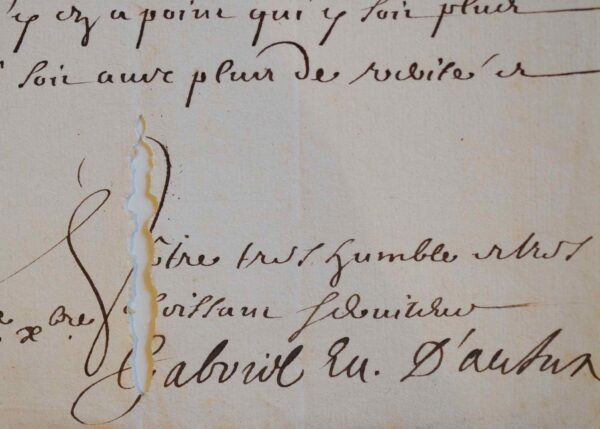 y en a point qui y soit plus
soit avec plus de verité et
vôtre tres humble et tres
xbre obeissant serviteur
Gabriel Ev. D'autun